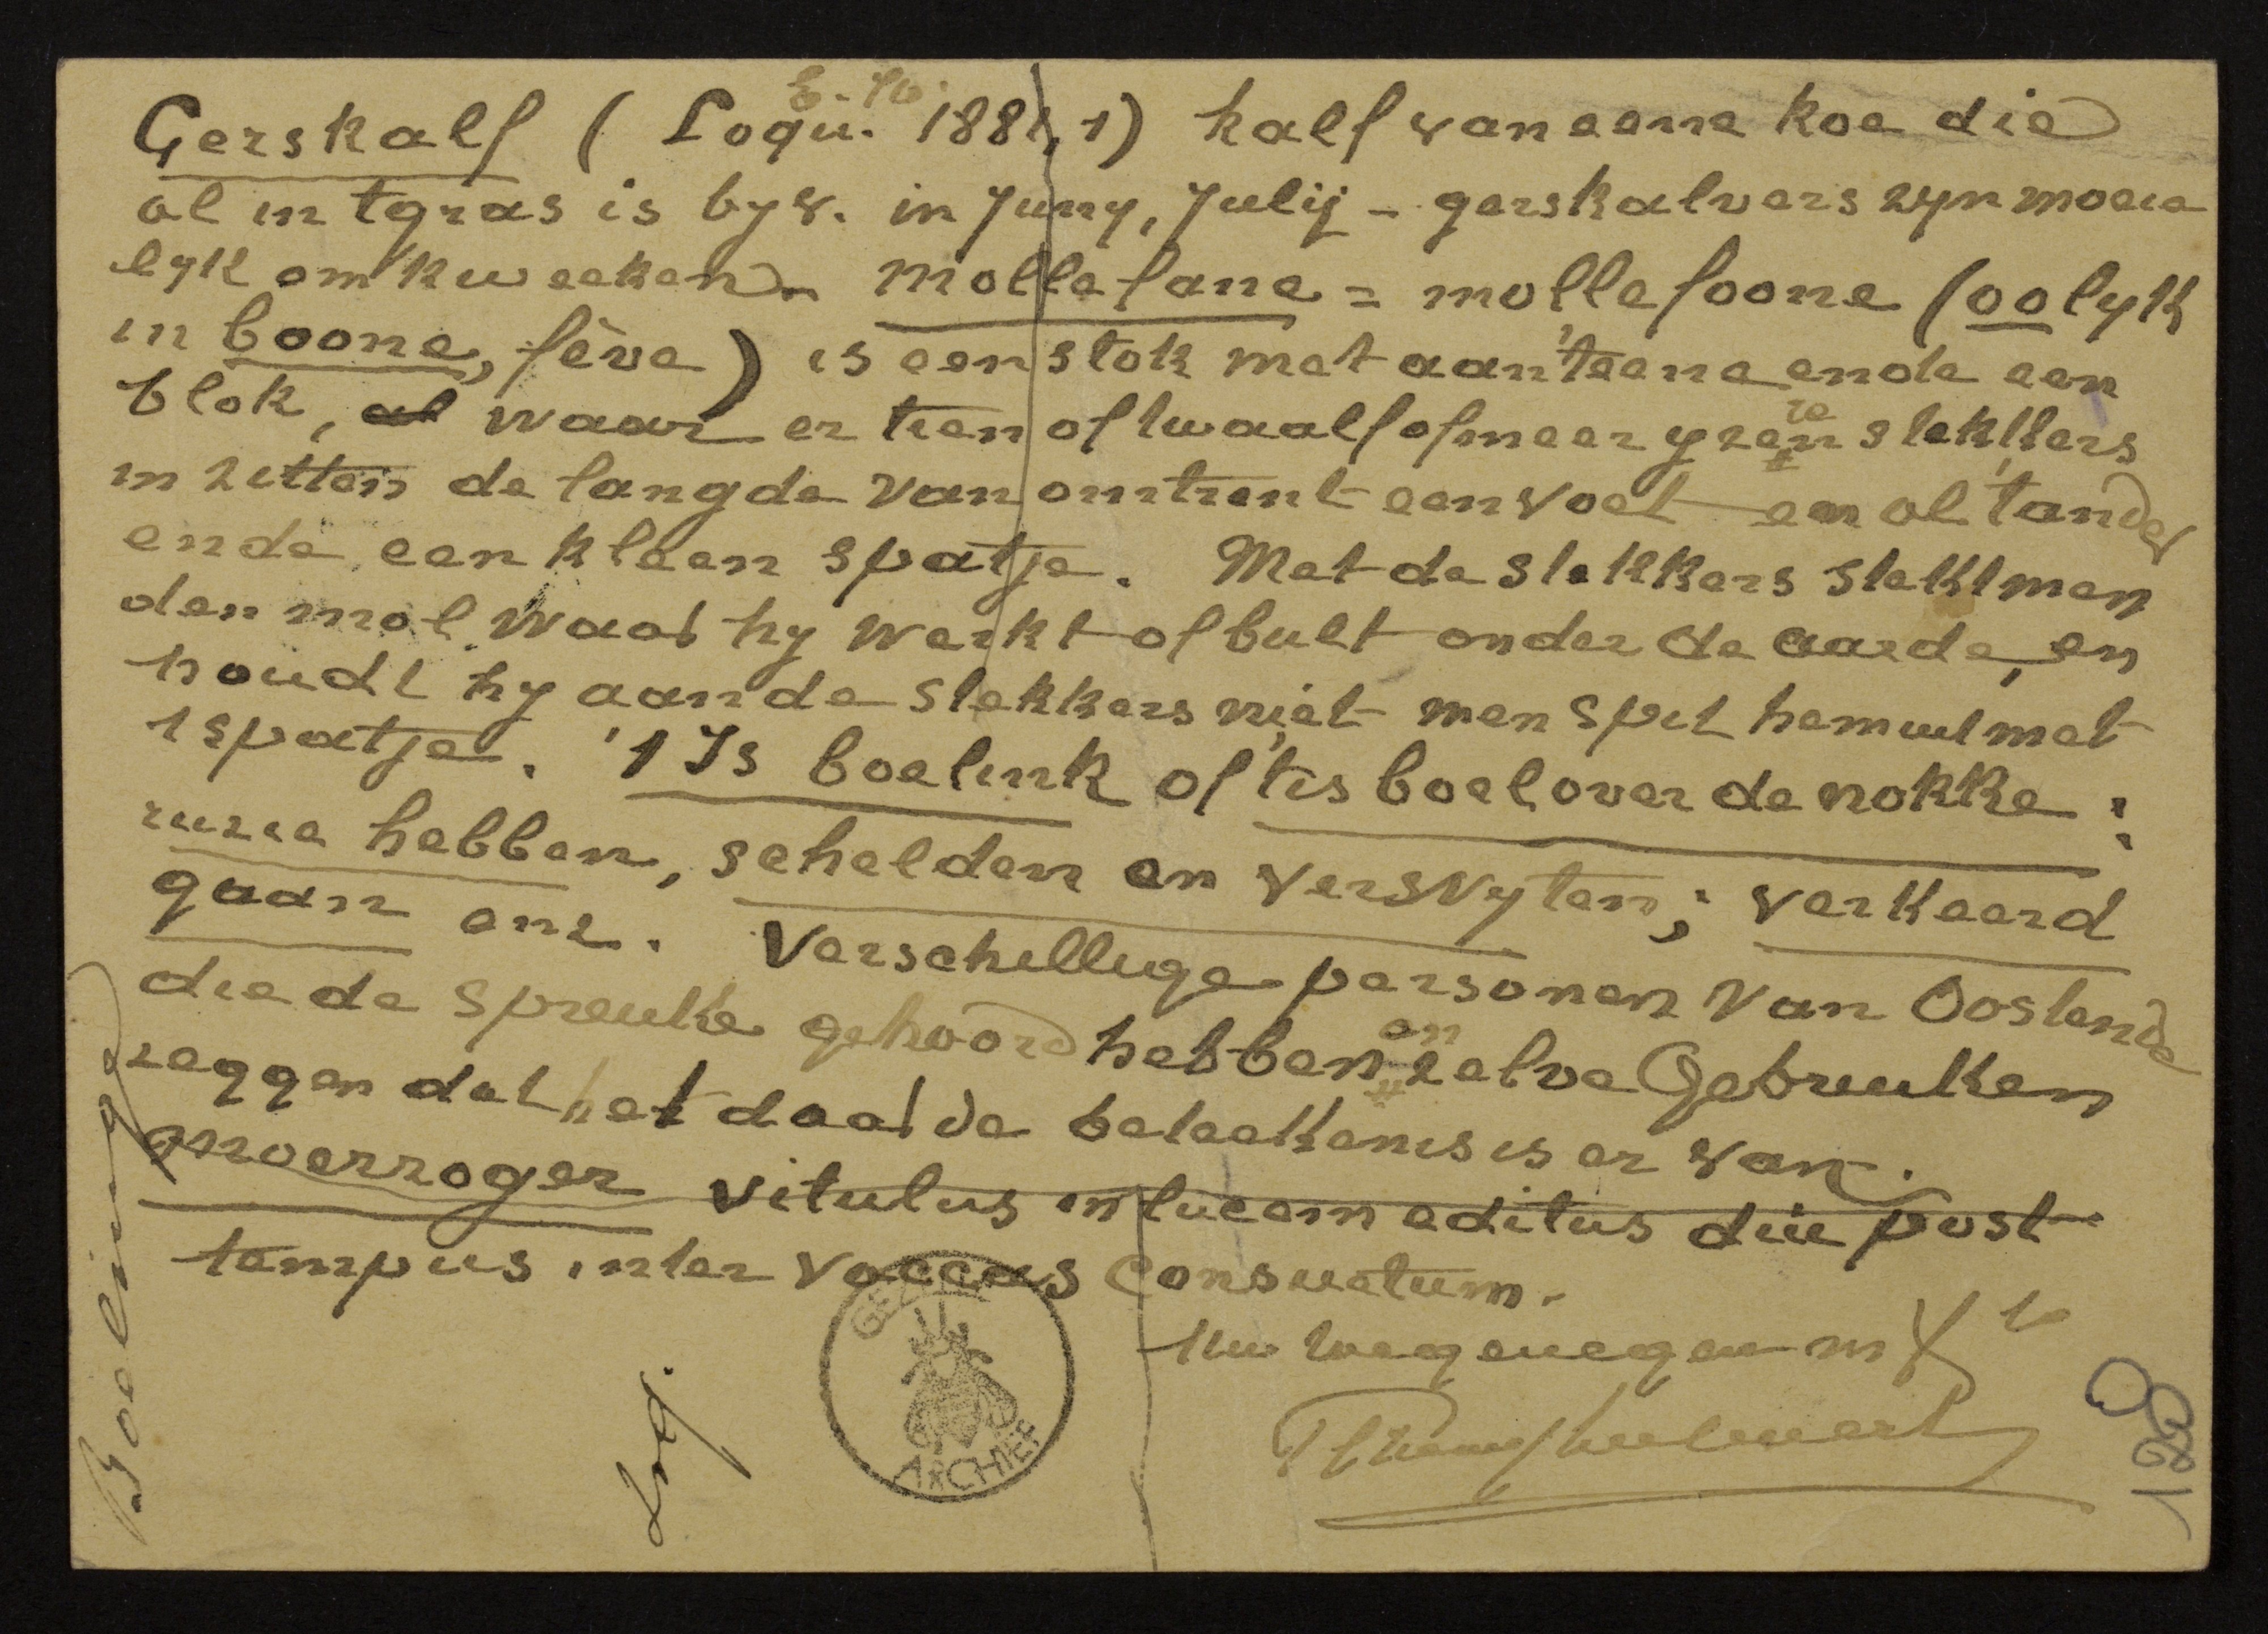 Gerskalf (Loqu. 1881, 1) kalf van eene koe die
al in tgras is byv. in Juny, Julij - gerskalvers zyn moeie
lyk om kweeken. - Mollefane = mollefoone (oo lyk
in boone, fève) is een stok met aan 'teene ende een
blok, al waar er tien of twaalf of meer yzere stekkers
in zitten de langde van omtrent een voet en al 'tander
ende een kleen spatje. Met de stekkers stekt men
den mol waar hy werkt of bult onder de aarde, en
houdt hy aan de stekkers niet, men spit hem uut met
t spatje. 't Is boelink of 't is boel over de nokke:
ruzie hebben, schelden en versvyten; verkeerd
gaan enz. Verschillige personen van Oostende
die de spreuke gehoord hebben en zelve Gebruiken
zeggen dat het daar de beteekenis is er van.
vitulus in lucem editus diu post
tempus inter vaccas consuetum.
Uw toegenegen in
Boelinge
Loq.
GEZELLE ARCHIEF